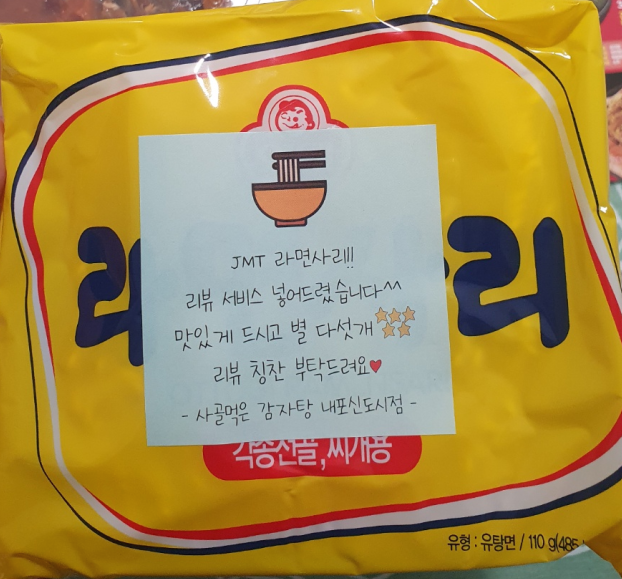 JMT 라면사리!!
리뷰 서비스 넣어드렸습니다^^
맛있게 드시고 별 다섯개
리뷰 칭찬 부탁드려요♥
- 사골먹은 감자탕 내포신도시점 -
각종전골,찌개용
유형 : 유탕면 / 110 g(485